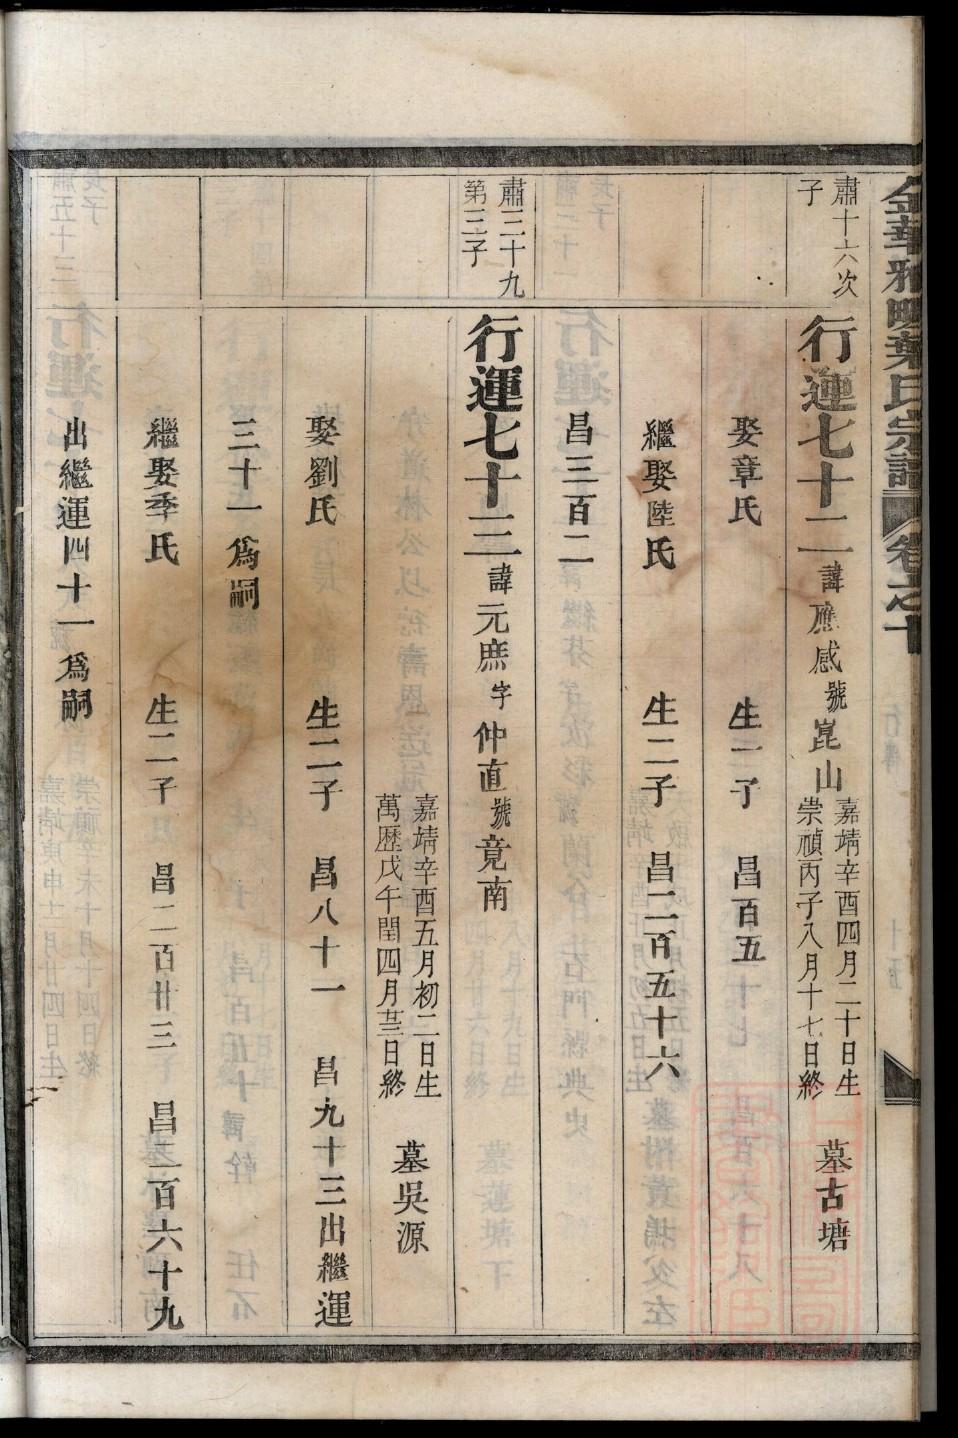 金華雅畈葉氏宗譜 卷之十
肅十六次
子
行運七十二 諱應感 號崑山 嘉靖辛酉四月二十日生
崇禎丙子八月十七日終 墓古塘
娶章氏 生二子 昌百五十七 昌百六十八
繼娶陸氏 生二子 昌二百五十六
昌三百二
肅三十九
第三子
行運七十三 諱元庶 字仲直 號竟南
嘉靖辛酉五月初二日生
萬歷戊午閏四月廿三日終 墓吳源
娶劉氏 生二子 昌八十一 昌九十三出繼運
三十一爲嗣
繼娶季氏 生二子 昌二百廿三 昌二百六十九
出繼運四十一爲嗣